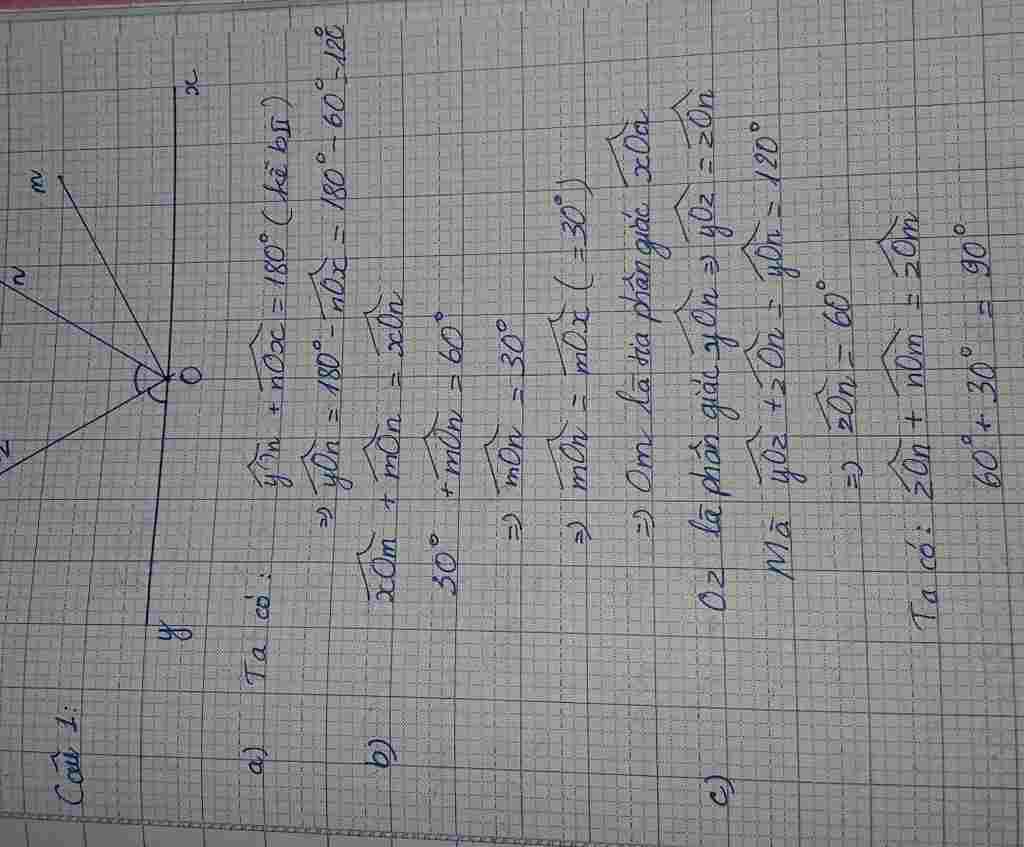 Câu 1:
z
n
m
y
O
x
a) Ta có: yOn + nOx = 180° (kề bù)
=> yOn = 180° - nOx = 180° - 60° = 120°
b) xOm + mOn = xOn
30° + mOn = 60°
=> mOn = 30°
=> mOn = mOx (= 30°)
=> Om là tia phân giác xOa
c) Oz là phân giác yOn => yOz = zOn
Mà yOz + zOn = yOn = 120°
=> zOn = 60°
Ta có: zOn + nOm = zOm
60° + 30° = 90°